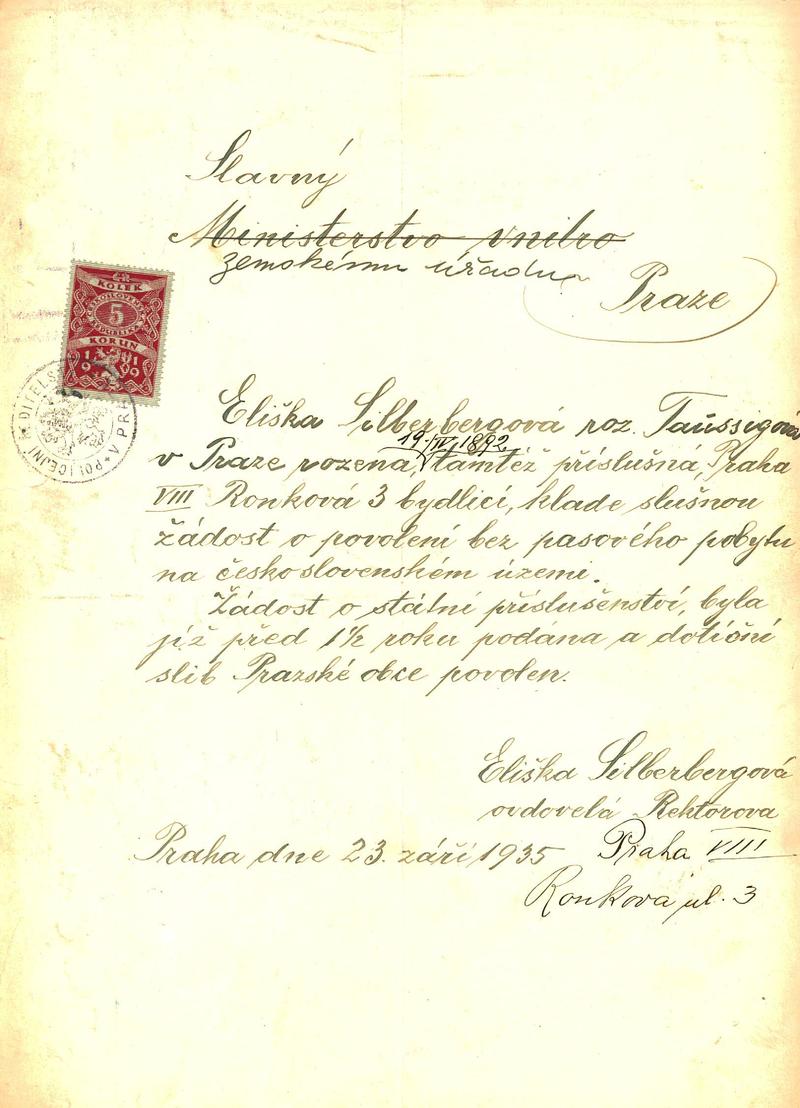 Slavný
Ministerstvo vnitro
zemskému úřadu
Praze
ČR
KOLEK
ČESKOSLOVENSKÁ
REPUBLIKA
5
KORUN
1919
DITELSTVÍ
POLICEJNÍ
V PR
Eliška Silberbergová roz. Taussigová
19. IV. 1892
v Praze rozena, tamtéž příslušná, Praha
VIII Ronková 3 bydlicí, klade slušnou
žádost o povolení bez pasového pobytu
na česko slovenském územi.
Žádost o stálni příslušenství, byla
již před 1½ roku podána a dotični
slib Prazské obce povolen.
Eliška Silberbergová
ovdovelá Rektorova
Praha dne 23. září 1935 Praha VIII
Ronkova ul. 3